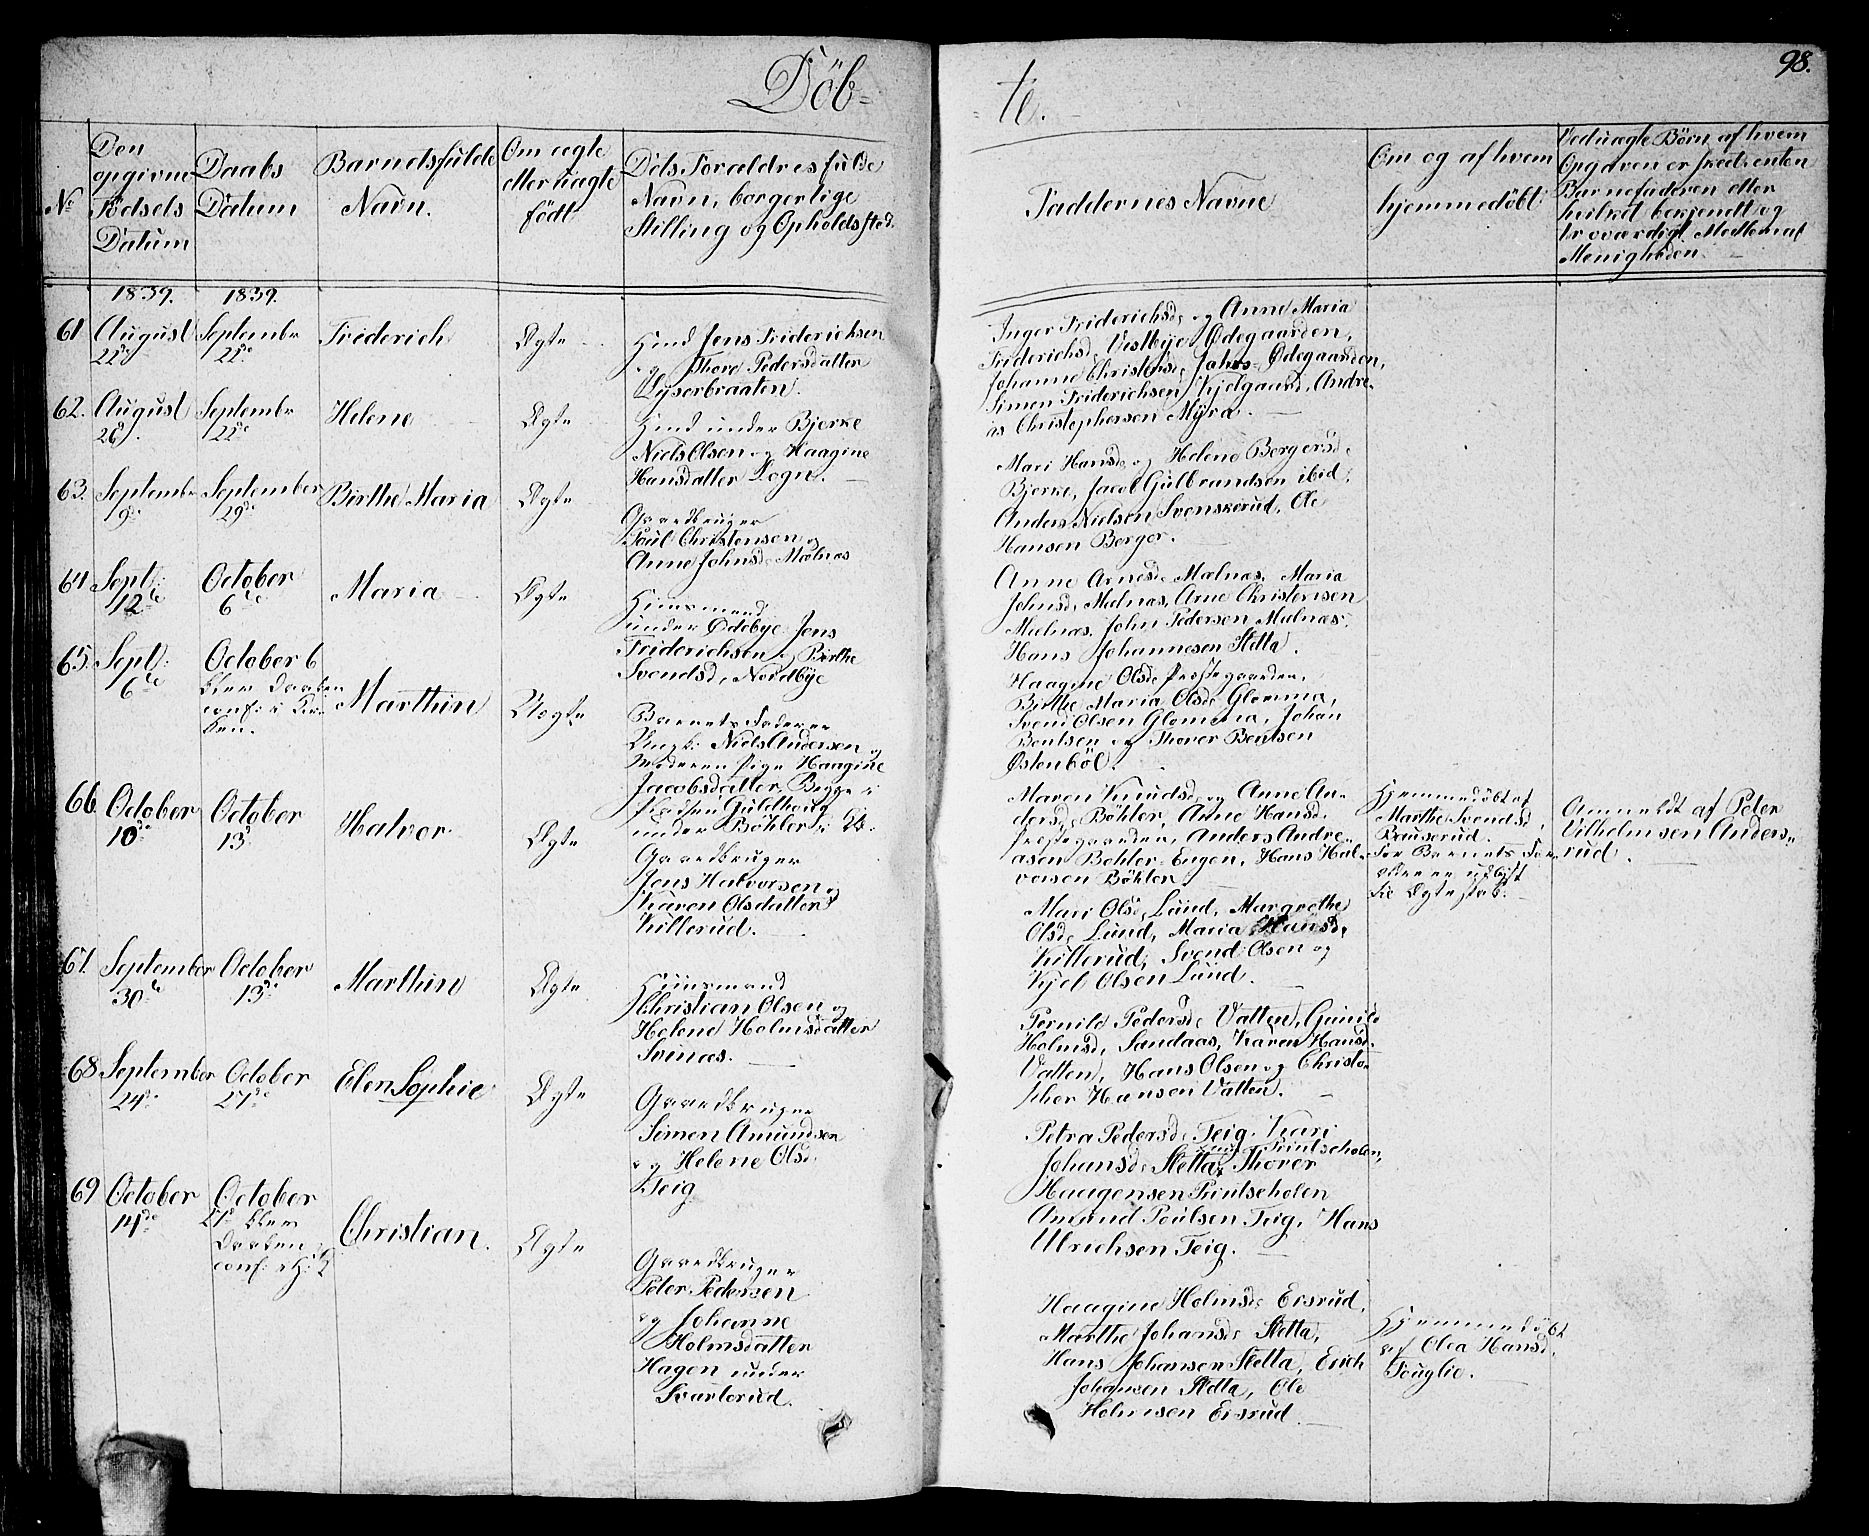 Döb-
te.
98.
No
Den opgivne Födsels Datum
Daabs Datum
Barnets fulde Navn.
Om ægte eller uægte født
Dets Forældres fulde Navn, borgerlige Stilling og Opholdssted.
Faddernes Navne
Om og af hvem hjemmedöbt
Ved uægte Börn af hvem Opgaven er skeet, enten Barnefaderen eller hvilket bekjendt og troværdigt Medlem af Menigheden.
1839.
1839.
61
August 22de
September 22de
Friderich
Ægte
Huusd Jens Fridericksen
og Thore Pedersdatter
Lyserbraaten.
Inger Friderichsd. og Anne Maria
Friderichsd. Vestbye Ödegaarden,
Johanne Christensd. Ödegaarden,
Simen Friderichsen Kjelgaard, Andre-
as Christophersen Myra.
62.
August 26d.
Septembr 22de
Helene
Ægte
under Bjerke
Niels Olsen og Haagine
Hansdatter Sogn.
Mari Hansd. og Helene Bergersd.
Bjerke, Jacob Gulbrandsen ibid,
Anders Nielsen Svenskerud, Ole
Hansen Berger.
63.
Septembr 9de
September 29de
Birthe Maria
Ægte
Gaardbruger
Poul Christensen og
Anne Johnsd. Mælnæs
Anne Arnesd. Mælnæs, Maria
Johnsd. Mælnæs, Arne Christensen
Mælnæs, John Pedersen Mælnæs,
Hans Johannesen Sletta.
64
Sept: 12te
October 6te
Maria
Ægte
Huusmand
under Ödebye Jens
Friderichsen og Birthe
Svendsd. Nordbye
Haagine Olsd. Præstegaarden,
Birthe Maria Olsd. Glomma,
Svend Olsen Glomma, Johan
Bentsen og Thorer Bentsen
Östenböl.
65.
Sept: 6te
October 6
blev Daaben
conf: i Kir-
ken.
Marthin
Uægte
Barnets Fader er
Ungk: Niels Andersen og
Moderen Pige Haagine
Jacobsdatter, Begge i
Pladsen Guldhaug
under Böhler
Maren Knudsd. og Anne An-
dersd. Böhler, Anne Hansd.
Præstegaarden, Anders Andre-
asen Böhler-Engen, Hans Hal-
vorsen Böhler.
Hjemmedöbt af
Marthe Svendsd.
Bauserud.
For Barnets For-
ældre er udgift
til Ægteskab.
Anmeldt af Peter
Vilhelmsen Anders-
rud.
66
October 10de
October 13
Halvor
Ægte
Gaardbruger
Jens Halvorsen og
Karen Olsdatter
Killerud.
Mari Olsd. Lund, Margrethe
Olsd. Lund, Maria Hansd.
Killerud, Svend Olsen og
Kjel Olsen Lund.
67.
September 30te
October 13de
Marthin
Ægte
Huusmand
Christian Olsen og
Helene Holmsdatter
Svinæs.
Pernild Pedersd. Vatten, Gunild
Holmsd. Sandaas, Karen Hansd.
Vatten, Hans Olsen og Christo-
pher Hansen Vatten.
68
September 24de
October 27de
Elen Sophie
Ægte
Gaardbruger
Simen Amundsen
og Helene Olsd.
Teig
Petra Pedersd. Teig, Kari
Johansd. Sletta, Thorer
Haagensen
Amund Poulsen Teig, Hans
Ulrichsen Teig.
69
October 14de
October
27de blev
Daaben
conf: i K:
Christian.
Ægte
Gaardbruger
Peter Pedersen
og Johanne
Holmsdatter
Hagen under
Svarterud.
Haagine Holmsd. Eisrud,
Marthe Johansd. Sletta,
Hans Johansen Sletta, Erich
Johansen Sletta, Ole
Holmsen Eisrud.
Hjemmedöbt
af Olea Hansd.
Fouglie.